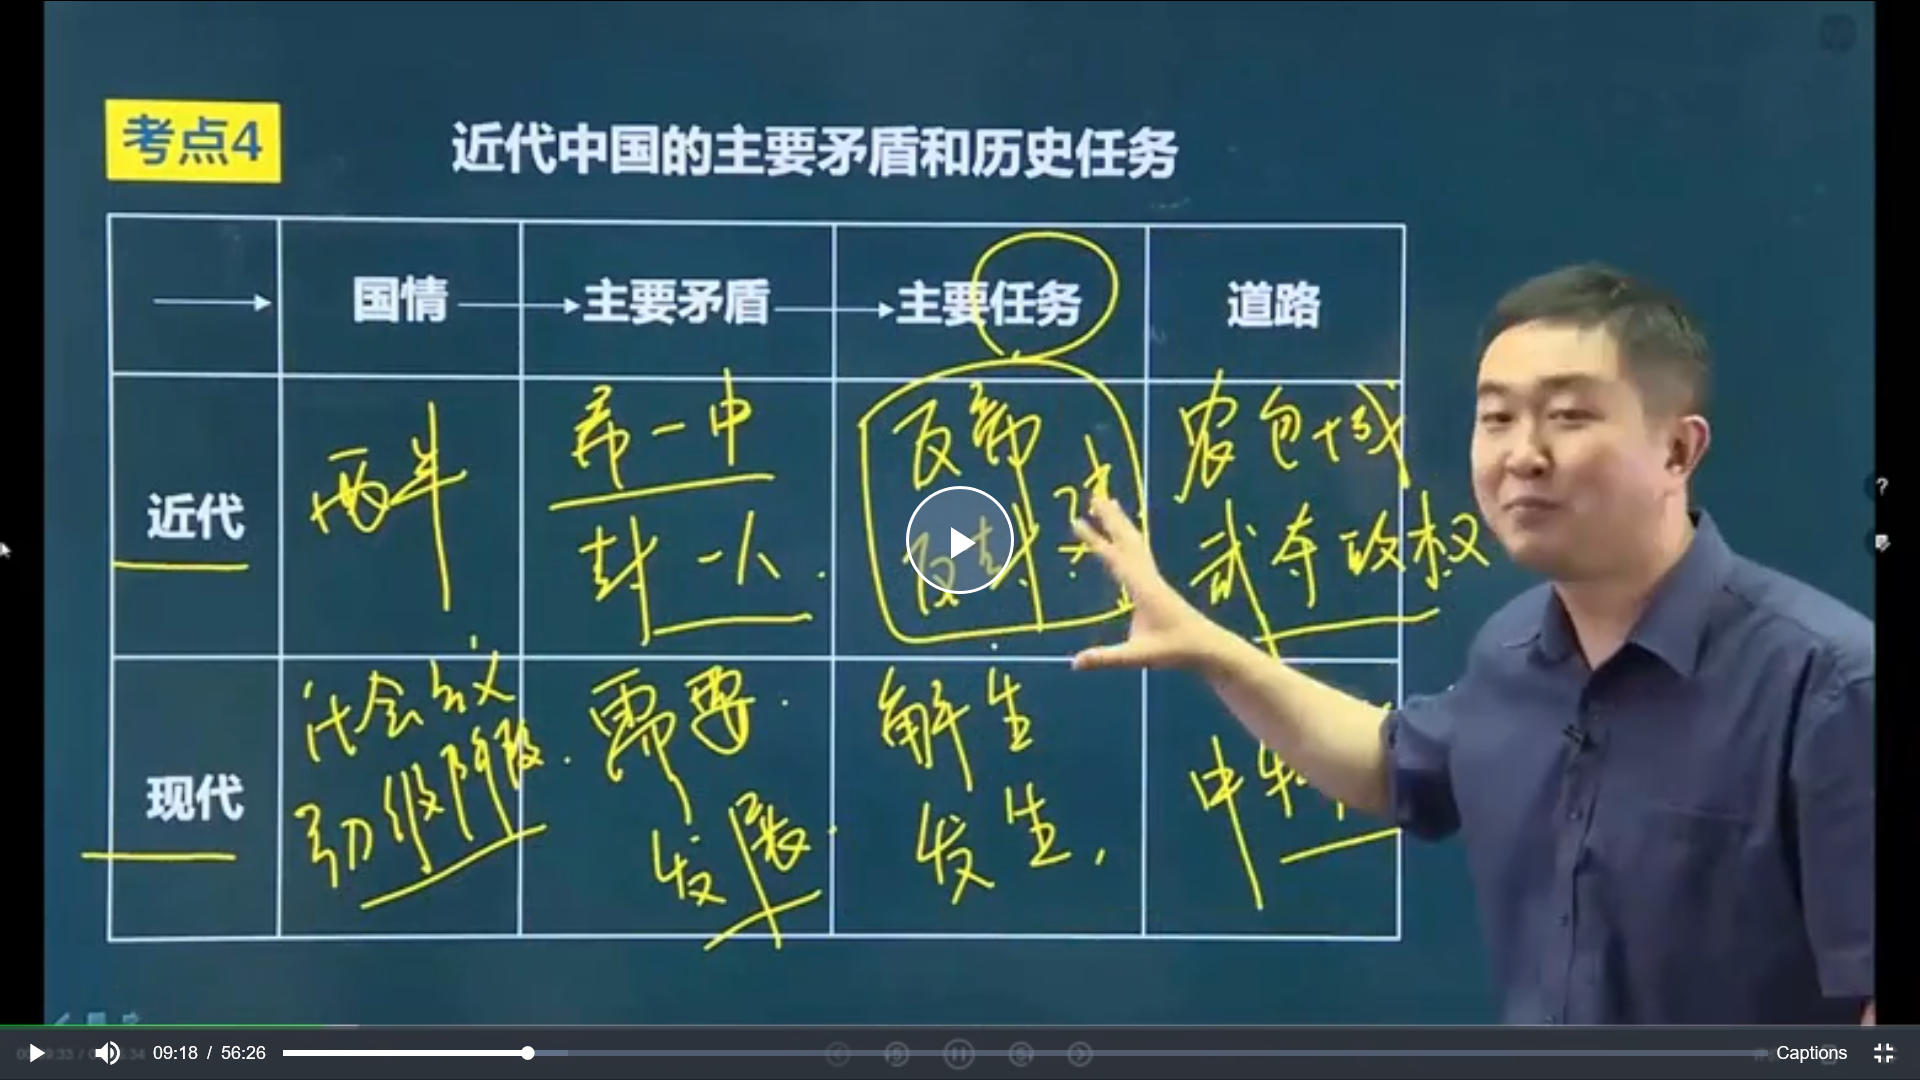 考点4
近代中国的主要矛盾和历史任务
国情 主要矛盾 主要任务 道路
近代
两半
帝一中
封一人
反帝
反封建
农包城
武夺政权
现代
社会主义
初级阶段
需要
发展
解生
发生
中特
09:18 / 56:26
Captions
?